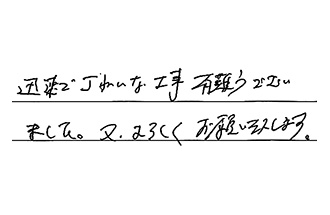 迅速で丁ねいな工事有難うござい
ました。又、よろしくお願いします。